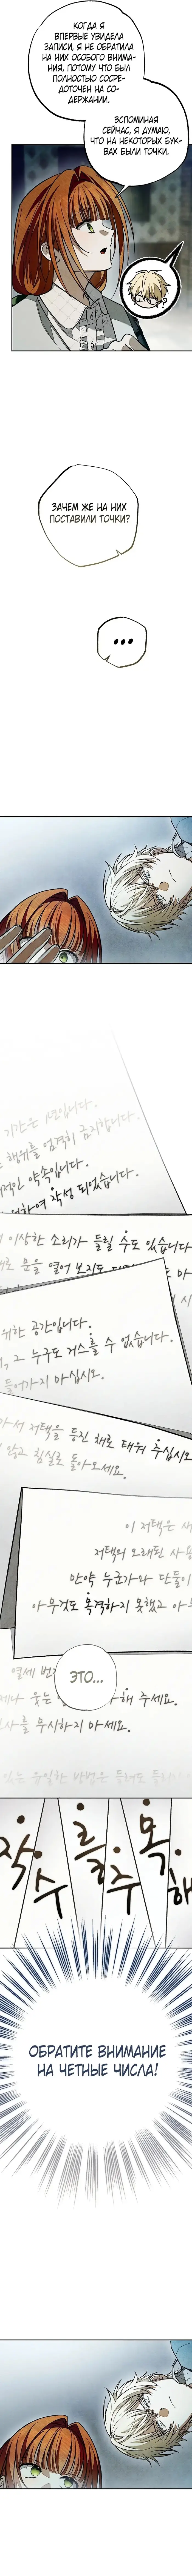 КОГДА Я
ВПЕРВЫЕ УВИДЕЛА
ЗАПИСИ, Я НЕ ОБРАТИЛА
НА НИХ ОСОБОГО ВНИМА-
НИЯ, ПОТОМУ ЧТО БЫЛ
ПОЛНОСТЬЮ СОСРЕ-
ДОТОЧЕН НА СО-
ДЕРЖАНИИ.
ВСПОМИНАЯ
СЕЙЧАС, Я ДУМАЮ,
ЧТО НА НЕКОТОРЫХ БУК-
ВАХ БЫЛИ ТОЧКИ.
?
ЗАЧЕМ ЖЕ НА НИХ
ПОСТАВИЛИ ТОЧКИ?
...
기간은
행위를 엄격히 금지합니다.
적인 약속입니다.
하여 작성 되었습니다.
이상한 소리가 들릴 수도 있습니다
문을 열어 보지도
위한 공간입니다.
, 그 누구도 거스를 수 없습니다.
들어가지 마십시오.
가서 저택을 등진 채로 태워 주십시오
않고 침실로 돌아오세요.
이 저택은
저택의 오래된
만약 누군가와 단둘이
아무것도 목격하지 못했고
열세 번
ЭТО...
웃는
해 주세요.
를 무시하지 마세요.
있는 유일한 방법은
작
수
를
주
목
해
ОБРАТИТЕ ВНИМАНИЕ
НА ЧЕТНЫЕ ЧИСЛА!